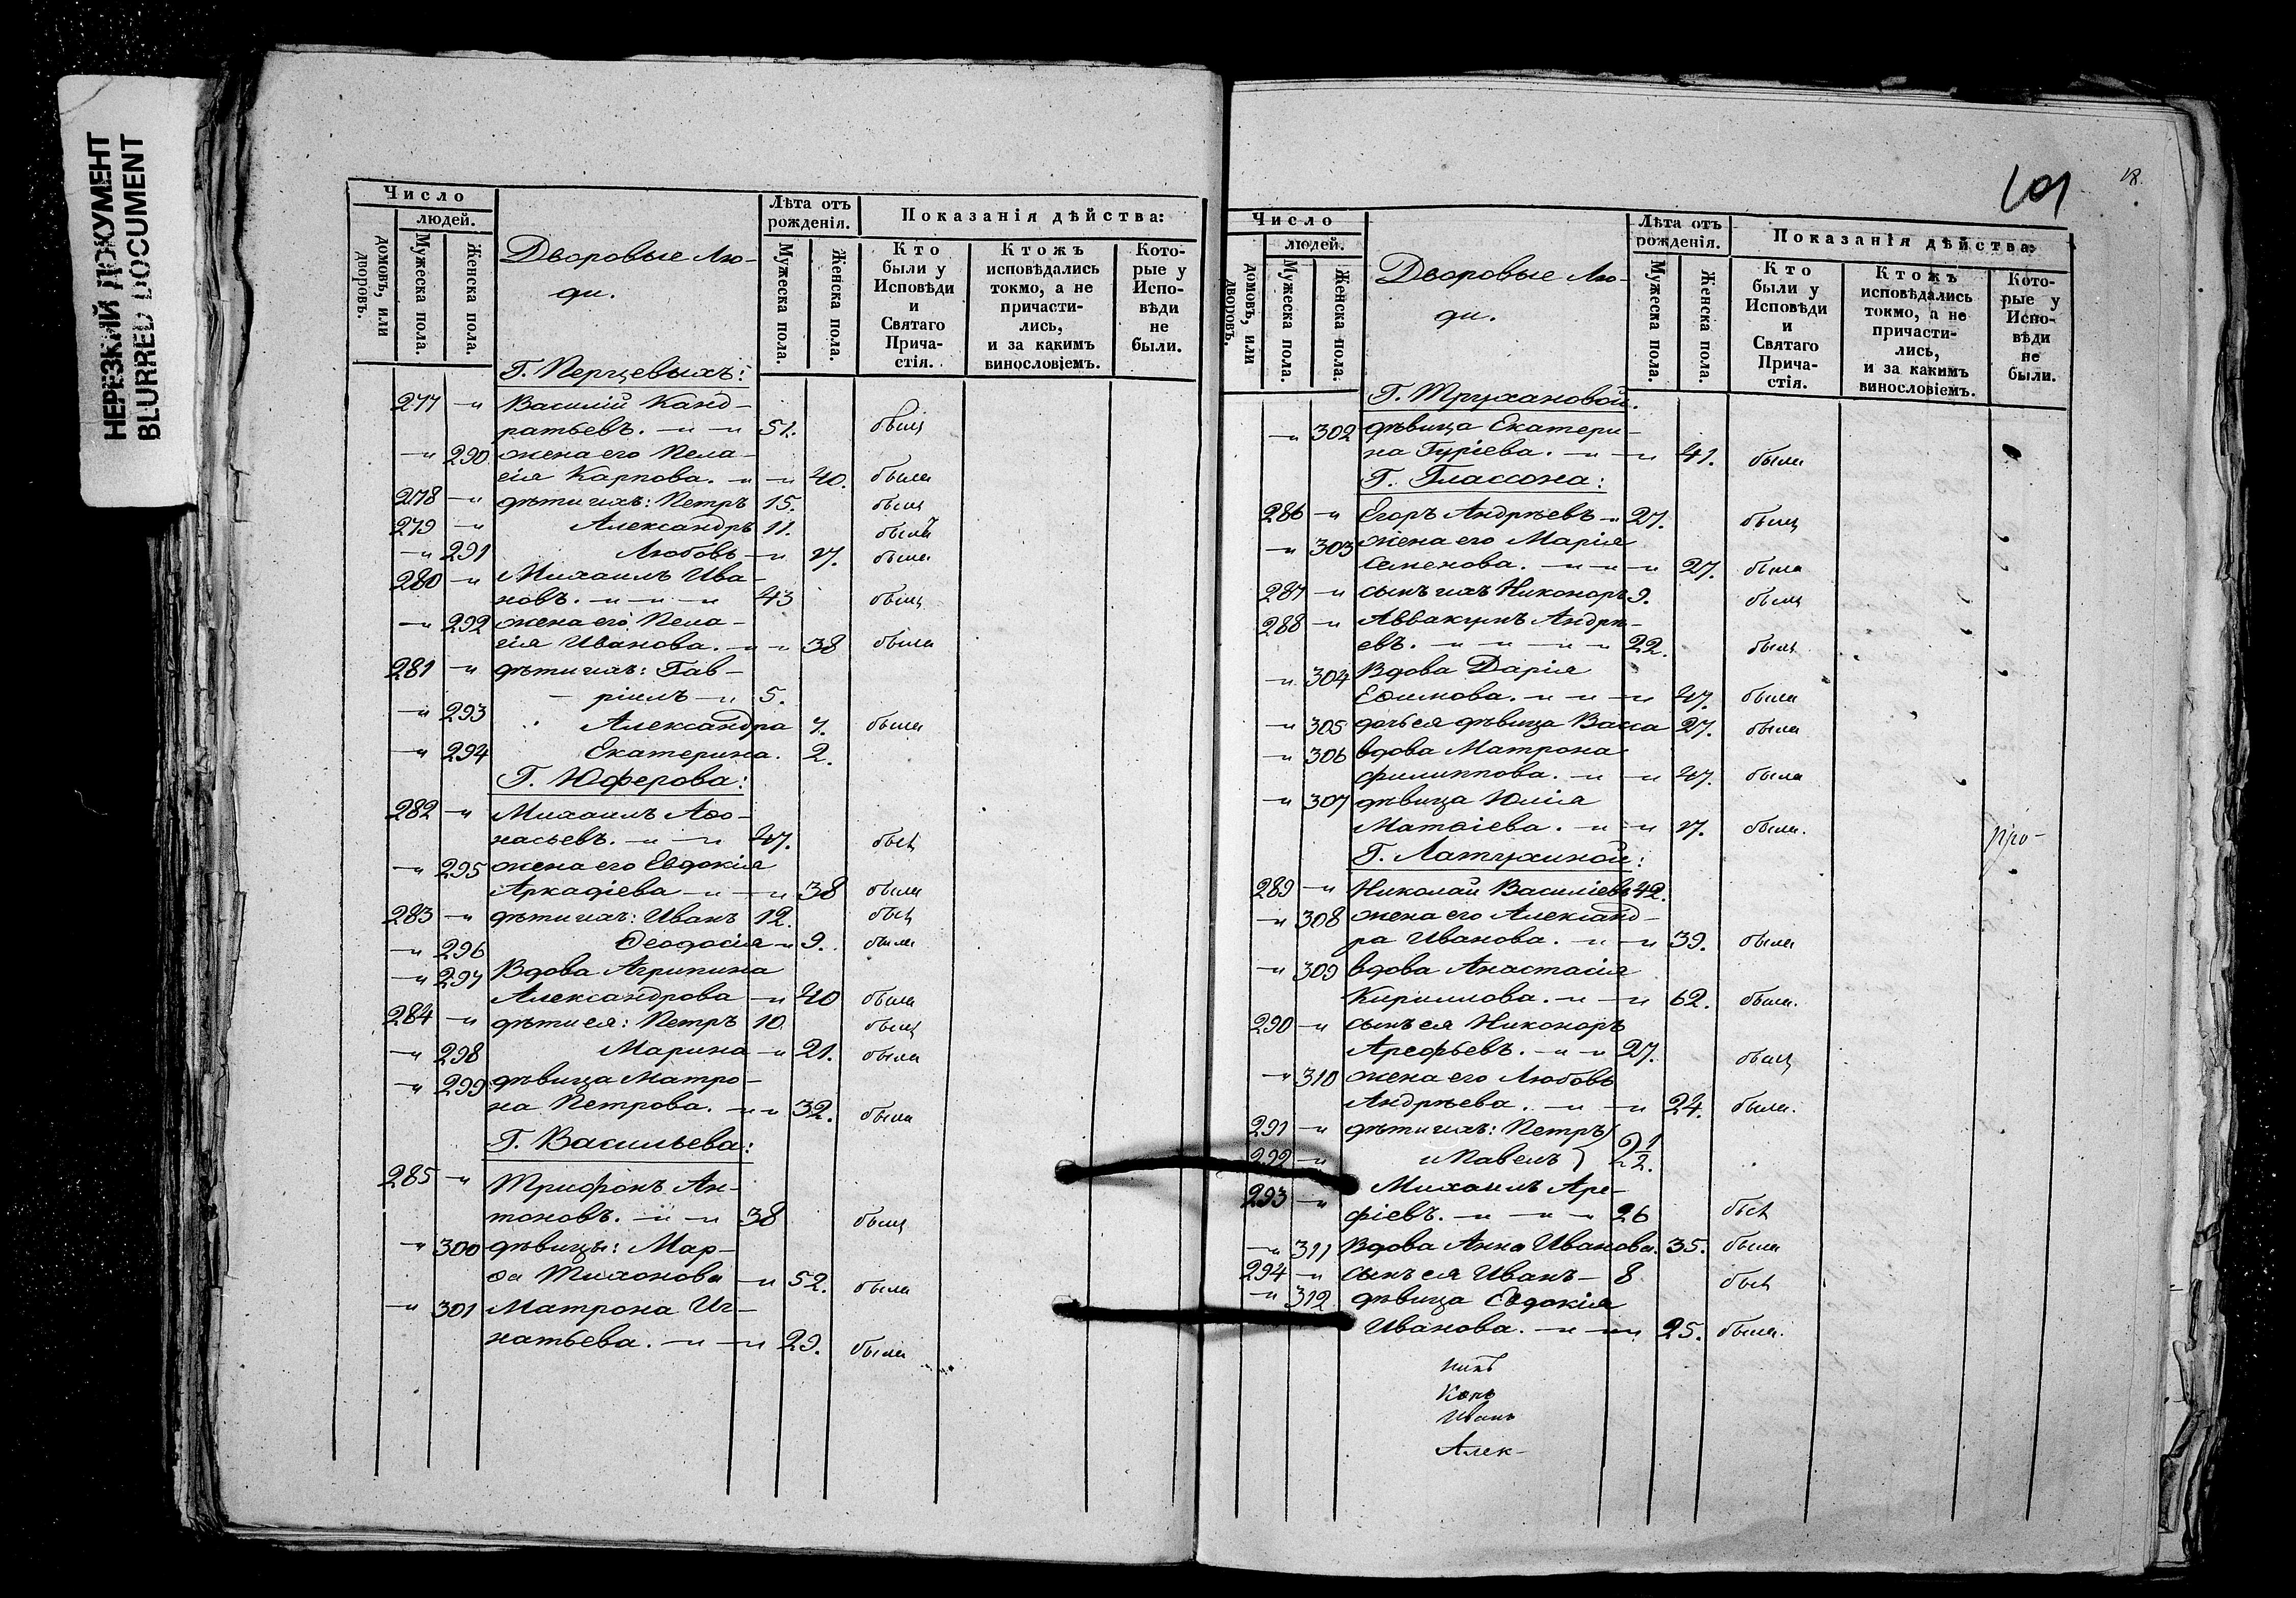 НЕРЕЗКИЙ ДОКУМЕНТ
BLURRED DOCUMENT
Число
людей.
домовъ, или дворовъ.
Мужеска пола.
Женска пола.
Дворовые Лю-
ди.
Лѣта отъ рожденія.
Мужеска пола.
Женска пола.
Показанія дѣйства:
Кто были у Исповѣди и Святаго Прича-стія.
Ктожъ исповѣдались токмо, а не причасти-лись, и за какимъ винословіемъ.
Кото-рые у Испо-вѣди не были.
Г. Перцевыхъ:
277 -"- Василій Канд-
ратьевъ. -"- -"- 51. былъ
-"- 290 жена его Пела-
гія Карпова. -"- -"- 40. была
278 -"- дѣти ихъ: Петръ 15. былъ
279 -"- Александръ 11. былъ
-"- 291 Любовь -"- 17. была
280 -"- Михаилъ Ива-
новъ. -"- -"- -"- 43 былъ
-"- 292 жена его Пела-
гія Иванова. -"- -"- 38 была
281 -"- дѣти ихъ: Гав-
ріилъ -"- 5.
-"- 293 Александра 7. была
-"- 294 Екатерина. 2.
Г. Юферова:
282 -"- Михаилъ Аѳо-
насьевъ. -"- -"- 47. былъ
-"- 295 жена его Евдокія
Аркадіева -"- -"- 38 была
283 -"- дѣти ихъ: Иванъ 12. былъ
-"- 296 Ѳеодосія -"- 9. была
-"- 297 Вдова Агрипина
Александрова -"- 40 была
284 -"- дѣти ея: Петръ 10 былъ
-"- 298 Марина -"- 21. была
-"- 299 дѣвица Матро-
на Петрова. -"- -"- 32. была
Г. Васильева:
285 -"- Трифонъ Ан-
тоновъ. -"- -"- 38 былъ
-"- 300 дѣвицы: Мар-
ѳа Тихонова -"- 52. была
-"- 301 Матрона Иг-
натьева. -"- -"- 29. была
101
18.
Число
людей.
домовъ, или дворовъ.
Мужеска пола.
Женска пола.
Дворовые Лю-
ди.
Лѣта отъ рожденія.
Мужеска пола.
Женска пола.
Показанія дѣйства:
Кто были у Исповѣди и Святаго Прича-стія.
Ктожъ исповѣдались токмо, а не причасти-лись, и за какимъ винословіемъ.
Кото-рые у Испо-вѣди не были.
Г. Трухановой.
-"- 302 дѣвица Екатери-
на Гуріева. -"- -"- 41. была
Г. Глассона:
286 -"- Егоръ Андрѣевъ -"- 27. былъ
-"- 303 жена его Марія
Семенова. -"- -"- -"- 27. была
287 -"- сынъ ихъ Никоноръ 9. былъ
288 -"- Аввакумъ Андрѣ-
евъ. -"- -"- -"- -"- 22. былъ
-"- 304 Вдова Дарія
Еѳимова. -"- -"- -"- 47. была
-"- 305 дочь ея дѣвица Васса 27. была
-"- 306 вдова Матрона
Филиппова. -"- -"- 47. была
-"- 307 дѣвица Юлія
Матѳіева. -"- -"- 17. была.
Г. Латухиной:
289 -"- Николай Василіевъ 42.
-"- 308 жена его Александ-
ра Иванова. -"- -"- 39. была
-"- 309 вдова Анастасія
Кириллова. -"- -"- 62. была.
290 -"- сынъ ея Никоноръ
Арефьевъ. -"- -"- 27. былъ
-"- 310 жена его Любовь
Андрѣева. -"- -"- 24. была.
291 -"- дѣти ихъ: Петръ
292 -"- и Павелъ } 2 1/2.
293 -"- Михаилъ Аре-
фіевъ. -"- -"- -"- 26 былъ
-"- 311 Вдова Анна Иванова. 35. была
294 -"- сынъ ея Иванъ -"- 8 былъ
-"- 312 дѣвица Евдокія
Иванова. -"- -"- 25. была.
Иванъ
Алек-